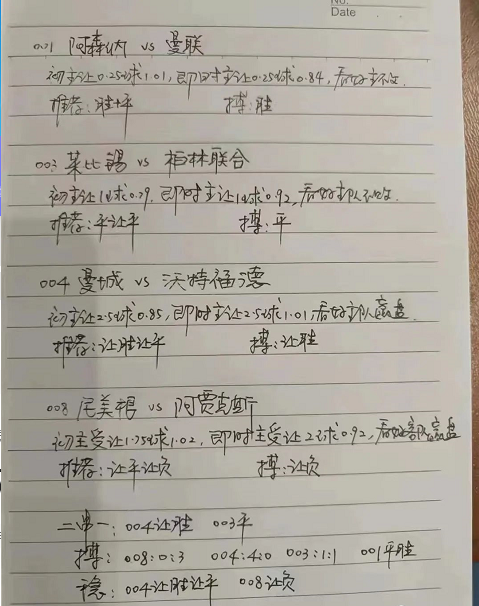 No.
Date
001 阿森纳 vs 曼联
初主让0.25球1.01,即时主让0.25球0.84,看好主不败.
推荐:胜+平 搏:胜
003 莱比锡 vs 柏林联合
初主让1球0.79.即时主让1球0.92,看好主队不败.
推荐:平让平 搏:平
004 曼城 vs 沃特福德
初主让2.5球0.85,即时主让2.5球1.01,看好主队赢盘.
推荐:让胜让平 搏:让胜
008 尼美根 vs 阿贾克斯
初主受让1.75球1.02,即时主受让2球0.92,看好客队赢盘
推荐:让平让负 搏:让负
二串一:004让胜 003平
搏:008:0:3 004:4:0 003:1:1 001平胜
稳:004让胜让平 008让负